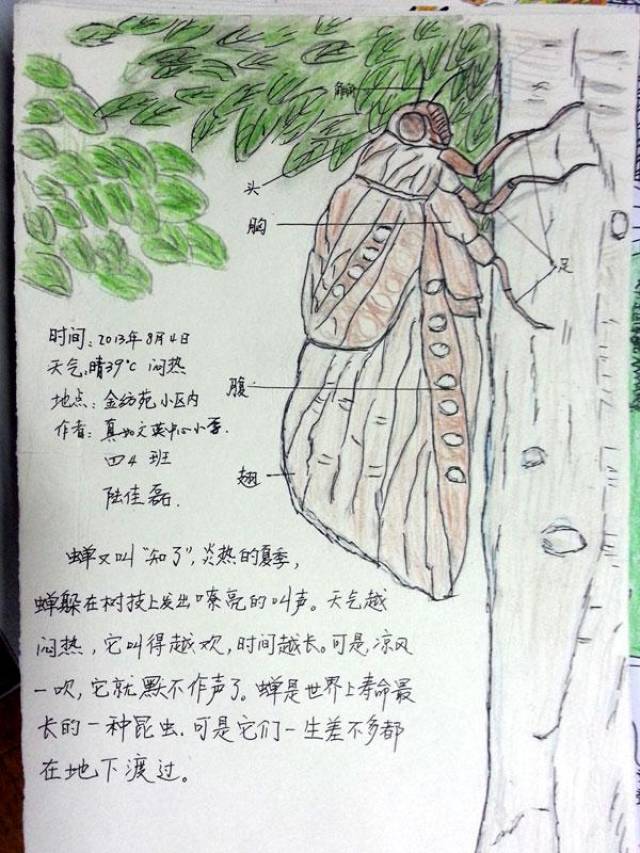 触角
头
胸
足
腹
翅
时间:2013年8月4日
天气:晴39℃ 闷热
地点:金纺苑小区内
作者:真如文英中心小学.
四4班
陆佳磊.
蝉又叫“知了”,炎热的夏季,
蝉躲在树技上发出嘹亮的叫声。天气越
闷热,它叫得越欢,时间越长。可是凉风
一吹,它就默不作声了。蝉是世界上寿命最
长的一种昆虫.可是它们一生差不多都
在地下渡过。